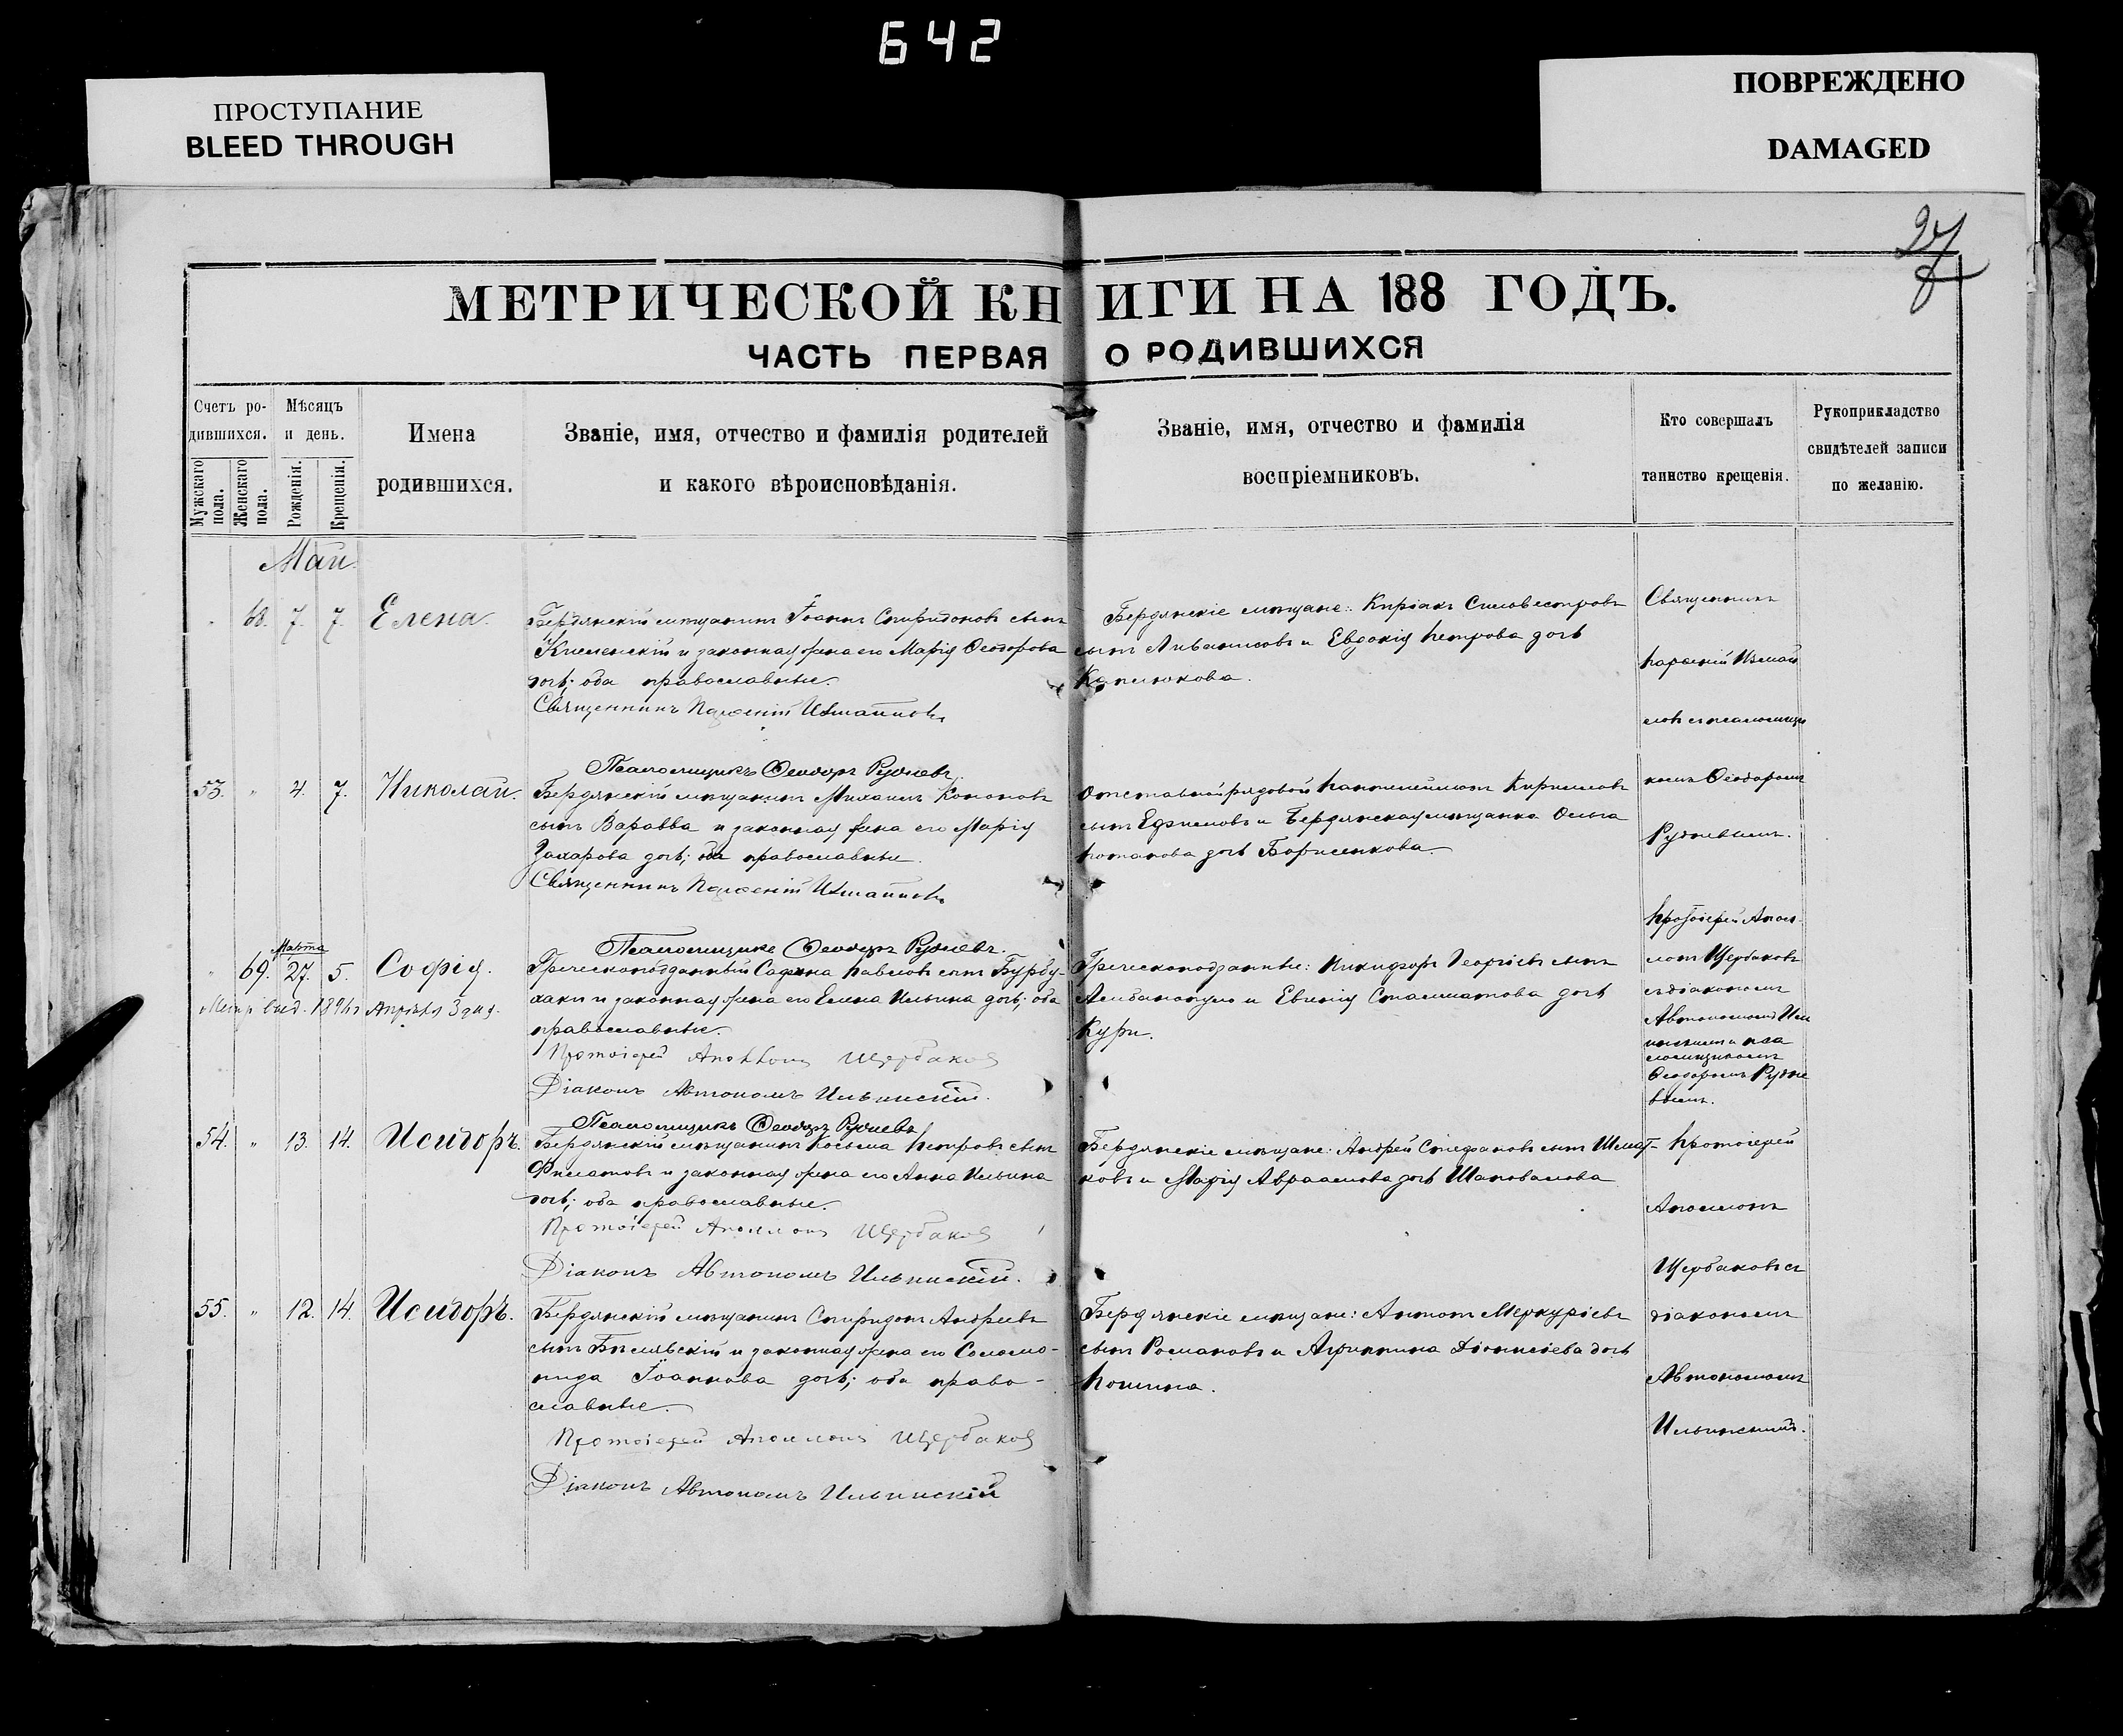 642
ПРОСТУПАНИЕ
BLEED THROUGH
ПОВРЕЖДЕНО
DAMAGED
27
МЕТРИЧЕСКОЙ КНИГИ НА 188 ГОДЪ.
ЧАСТЬ ПЕРВАЯ О РОДИВШИХСЯ
Счетъ ро-
дившихся.
Мужскаго пола.
Женскаго пола.
Мѣсяцъ
и день.
Рожденія.
Крещенія.
Имена
родившихся.
Званіе, имя, отчество и фамилія родителей
и какого вѣроисповѣданія.
Званіе, имя, отчество и фамилія
воспріемниковъ.
Кто совершалъ
таинство крещенія.
Рукоприкладство
свидѣтелей записи
по желанію.
Май.
68. 7. 7. Елена.
Бердянскій мѣщанинъ Іоаннъ Спиридоновъ сынъ
и законная жена его Марія Ѳеодорова
дочь; оба православные.
Священникъ Парѳеній Измаиловъ
Псаломщикъ Ѳеодоръ Рудневъ.
Бердянскіе мѣщане: Киріакъ Силовестровъ
сынъ Ливанисовъ и Евдокія Петрова дочь
Каплюкова.
Священникъ
Парѳеній Измаи
ловъ съ псаломщи
комъ Ѳеодоромъ
Рудневымъ.
53. " 4. 7. Николай.
Бердянскій мѣщанинъ Михаилъ Кононовъ
сынъ Варавва и законная жена его Марія
Захарова дочь; оба православные.
Священникъ Парѳеній Измаиловъ
Псаломщикъ Ѳеодоръ Рудневъ.
Отставной рядовой Пантелеймонъ Кирилловъ
сынъ Ефимовъ и Бердянская мѣщанка Ольга
Потапова дочь Борисенкова.
" 69. Марта 27. 5. Софія.
Метр. выд. 1896 г. Апрѣля 3 дня.
Греческоподданный Павловъ сынъ Бурду-
хаки и законная жена его Елена Ильина дочь; оба
православные.
Протоіерей Аполлонъ Щербаковъ
Діаконъ Автономъ Ильинскій.
Псаломщикъ Ѳеодоръ Рудневъ
Греческоподданные: Никифоръ Георгіевъ сынъ
и Евгенія Стаматова дочь
Кури.
Протоіерей Апол-
лонъ Щербаковъ
съ діакономъ
Автономомъ Иль
инскимъ и пса
ломщикомъ
Ѳеодоромъ Рудне
вымъ.
54. " 13. 14. Исидоръ.
Бердянскій мѣщанинъ Косьма Петровъ сынъ
Филатовъ и законная жена его Анна Ильина
дочь; оба православные.
Протоіерей Аполлонъ Щербаковъ
Діаконъ Автономъ Ильинскій.
Бердянскіе мѣщане: Андрей Стефановъ сынъ
ковъ и Марія Авраамова дочь Шаповалова
Протоіерей
Аполлонъ
Щербаковъ съ
діакономъ
Автономомъ
Ильинскимъ.
55. " 12. 14. Исидоръ.
Бердянскій мѣщанинъ Спиридонъ Андреевъ
сынъ Бѣлявскій и законная жена его Соломо-
нида Іоаннова дочь; оба право-
славные.
Протоіерей Аполлонъ Щербаковъ
Діаконъ Автономъ Ильинскій
Бердянскіе мѣщане: Антонъ Меркуріевъ
сынъ Романовъ и Агриппина Діонисіева дочь